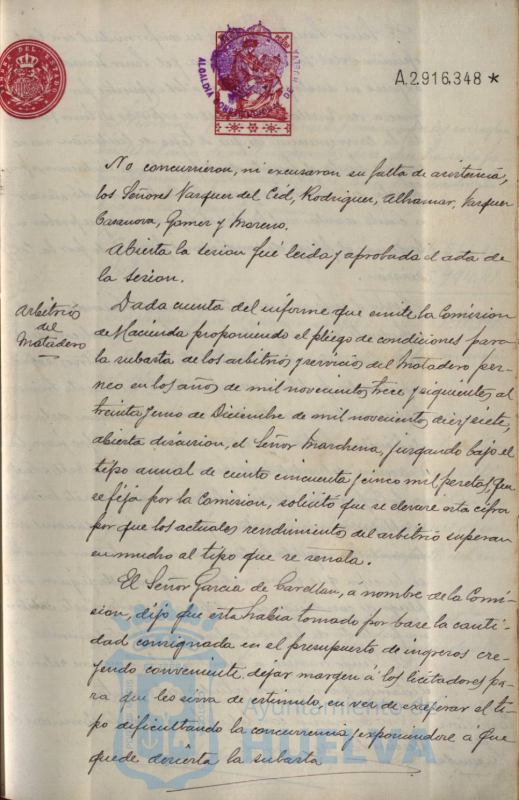 A.2.916.348 *
No concurrieron, ni excusaron su falta de asistencia,
los Señores Vazquez del Cid, Rodriguez, Alhamar, Vazquez
Casanova, Gomez y Moreno.
Abierta la sesion fué leida y aprobada el acta de
la sesion.
Arbitrio
del
Matadero
Dada cuenta del informe que emite la Comision
de Hacienda proponiendo el pliego de condiciones para
la subasta de los arbitrios y servicio del Matadero
en los años de mil novecientos trece y siguientes al
treinta y uno de Diciembre de mil novecientos diez y siete,
abierta discusion, el Señor Marchena, juzgando bajo el
tipo annual de ciento cincuenta y cinco mil pesetas, que
se fija por la Comision, solicitó que se elevase esta cifra
por que los actuales rendimientos del arbitrio superan
en mucho al tipo que se señala.
El Señor Garcia de Castellau, á nombre de la Comi-
sion, dijo que esta habia tomado por base la canti-
dad consignada en el presupuesto de ingresos cre-
yendo conveniente, dejar margen á los licitadores pa-
ra que les sirva de estimulo, en vez de exagerar el ti-
po dificultando la concurrencia y exponiendose á que
quede desierta la subasta
Ayuntamiento de
HUELVA